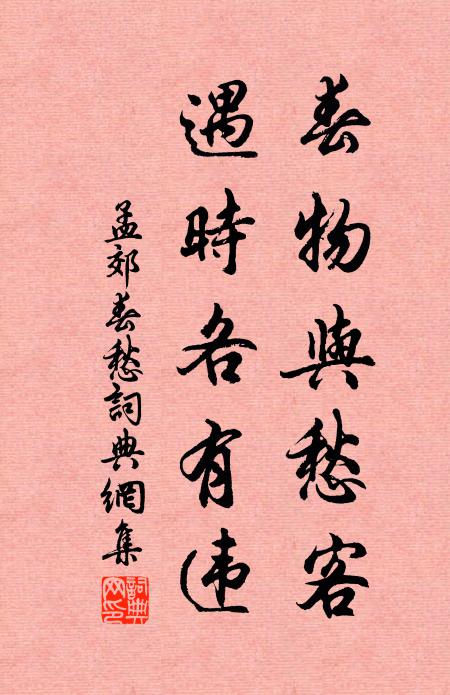 春物與愁客
遇時各有违
孟郊春愁詞典網集
詞典网印